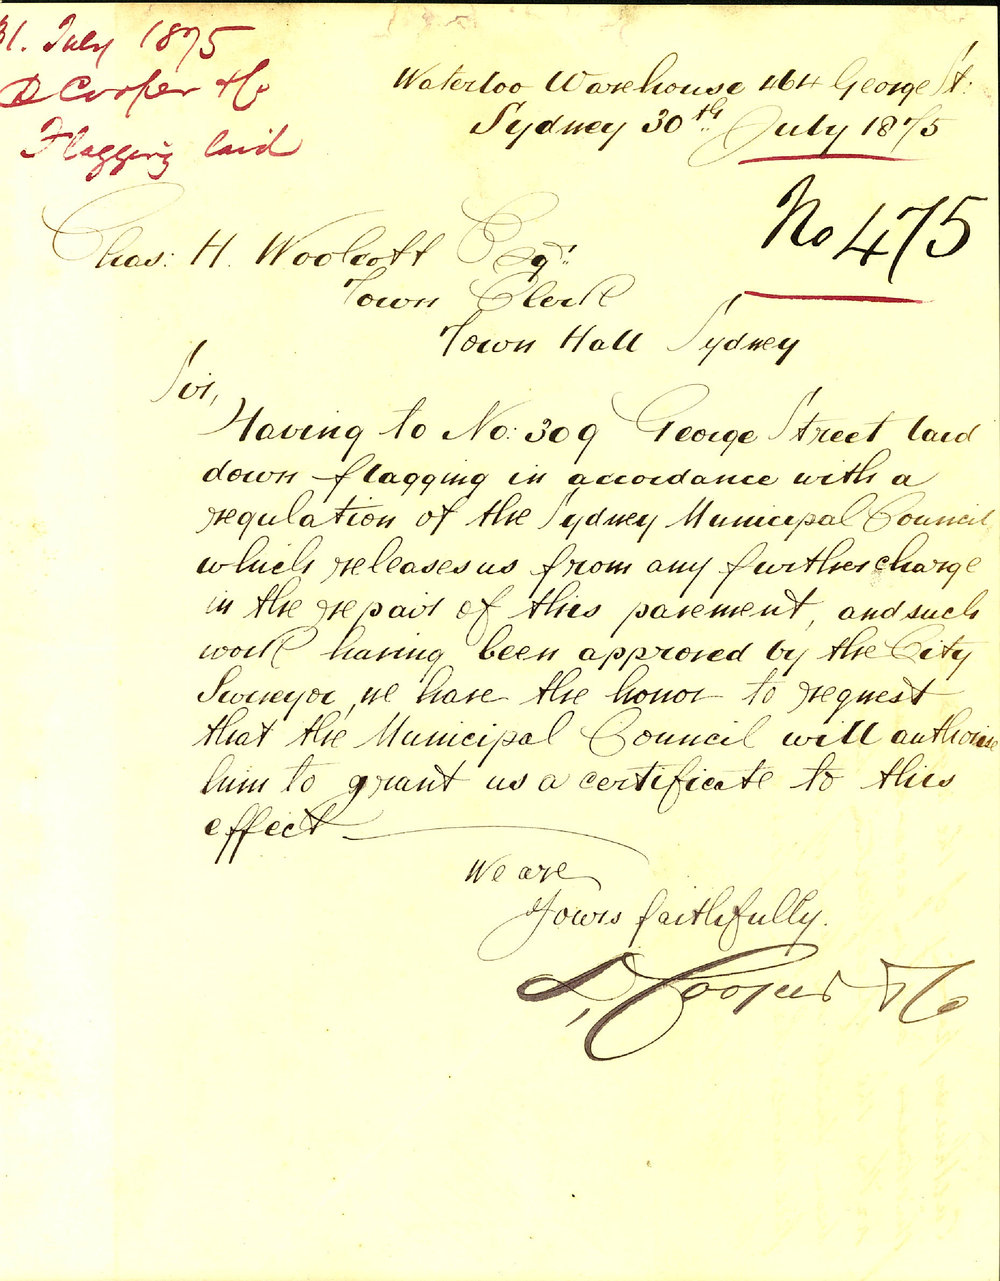 31. July 1875
D Cooper & Co
Flagging laid
Waterloo Warehouse 464 George St.
Sydney 30th July 1875
No 475
Chas: H. Woolcott Esqr.
Town Clerk
Town Hall Sydney
Sir,
Having to No: 309 George Street laid
down flagging in accordance with a
regulation of the Sydney Municipal Council
which releases us from any further charge
in the repair of this pavement, and such
work having been approved by the City
Surveyor, we have the honor to request
that the Municipal Council will authorise
him to grant us a certificate to this
effect
We are
Yours faithfully.
D, Cooper & Co